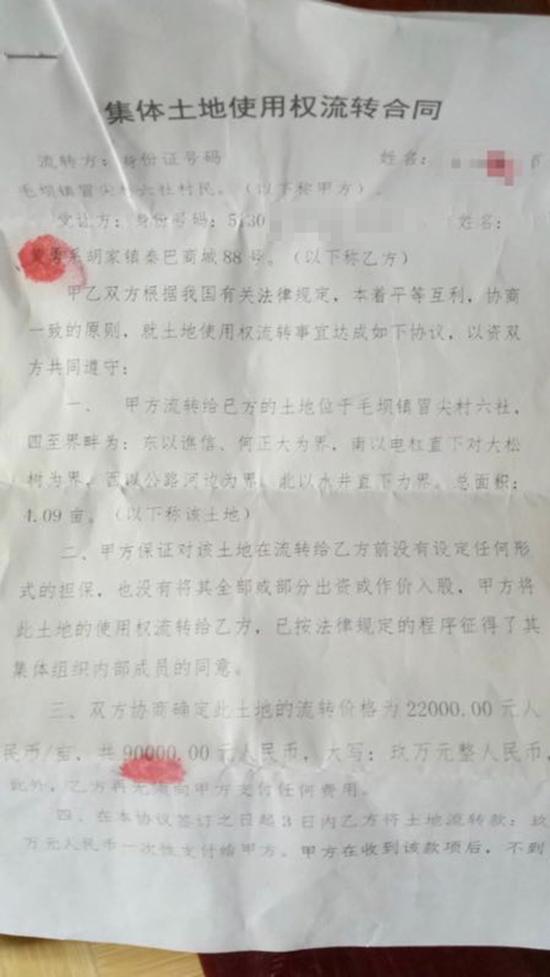 集体土地使用权流转合同
流转方：身份证号码 姓名：
毛坝镇冒尖村六社村民。（以下称甲方）。
受让方：身份号码：5130 姓名：
系胡家镇秦巴商城88号。（以下称乙方）
甲乙双方根据我国有关法律规定，本着平等互利，协商
一致的原则，就土地使用权流转事宜达成如下协议，以资双
方共同遵守：
一、 甲方流转给已方的土地位于毛坝镇冒尖村六社，
四至界畔为：东以谯信、何正大为界，南以电杠直下对大松
树为界，西以公路河边为界，北以水井直下为界。总面积：
4.09亩。（以下称该土地）
二、甲方保证对该土地在流转给乙方前没有设定任何形
式的担保，也没有将其全部或部分出资或作价入股，甲方将
此土地的使用权流转给乙方，已按法律规定的程序征得了其
集体组织内部成员的同意。
三、双方协商确定此土地的流转价格为22000.00元人
民币/亩，共90000.00元人民币，大写：玖万元整人民币，
此外，乙方再无须向甲方支付任何费用。
四、在本协议签订之日起3日内乙方将土地流转款：玖
万元人民币一次性支付给甲方。甲方在收到该款项后，不到